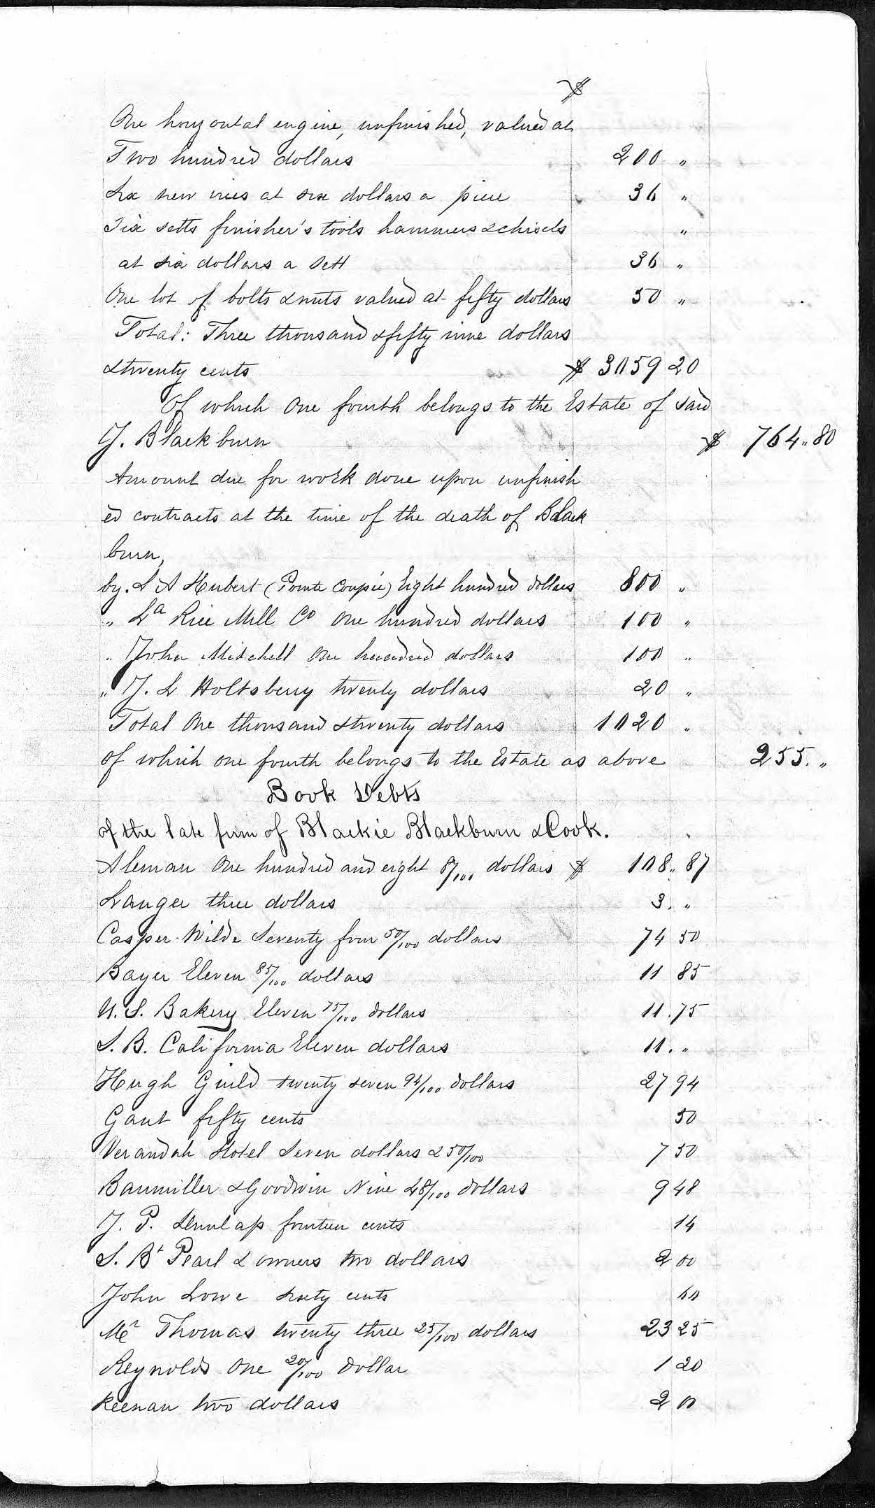 $
One horizontal engine, unfinished, valued at
Two hundred dollars 200 "
Six new vices at six dollars a piece 36 "
Six setts finisher's tools hammers & chisels "
at six dollars a sett 36 "
One lot of bolts & nuts valued at fifty dollars 50 "
Total: Three thousand & fifty nine dollars
& twenty cents $ 3059 20
Of which One fourth belongs to the Estate of said
J. Blackburn $ 764 " 80
Amount due for work done upon unfinish
ed contracts at the time of the death of Black
burn,
by. S A Hubert (Pointe Coupée) Eight hundred dollars 800 "
" La Rice Mill Co One hundred dollars 100 "
" John Mitchell One hundred dollars 100 "
" J. L Holtsberry twenty dollars 20 "
Total One thousand & twenty dollars 1020 "
of which one fourth belongs to the Estate as above 255. "
Book Debts
of the late firm of Blackie Blackburn & Cook.
Aleman One hundred and eight 87/100 dollars $ 108 " 87
Langer three dollars 3. "
Casper Wilde Seventy four 50/100 dollars 74 50
Bayer Eleven 85/100 dollars 11 85
U. S. Bakery Eleven 75/100 dollars 11.75
S. B. California Eleven dollars 11. "
Hugh Guild twenty seven 94/100 dollars 27 94
Gant fifty cents 50
Verandah Hotel Seven dollars & 50/100 7 50
Baumiller & Goodwin Nine 48/100 dollars 9 48
J. P. Dunlap fourteen cents 14
S. Bt Pearl & owners two dollars 2 00
John Lowe sixty cents 60
Mr Thomas twenty three 25/100 dollars 23 25
Reynolds One 20/100 Dollar 1 20
Keenan two dollars 2 00